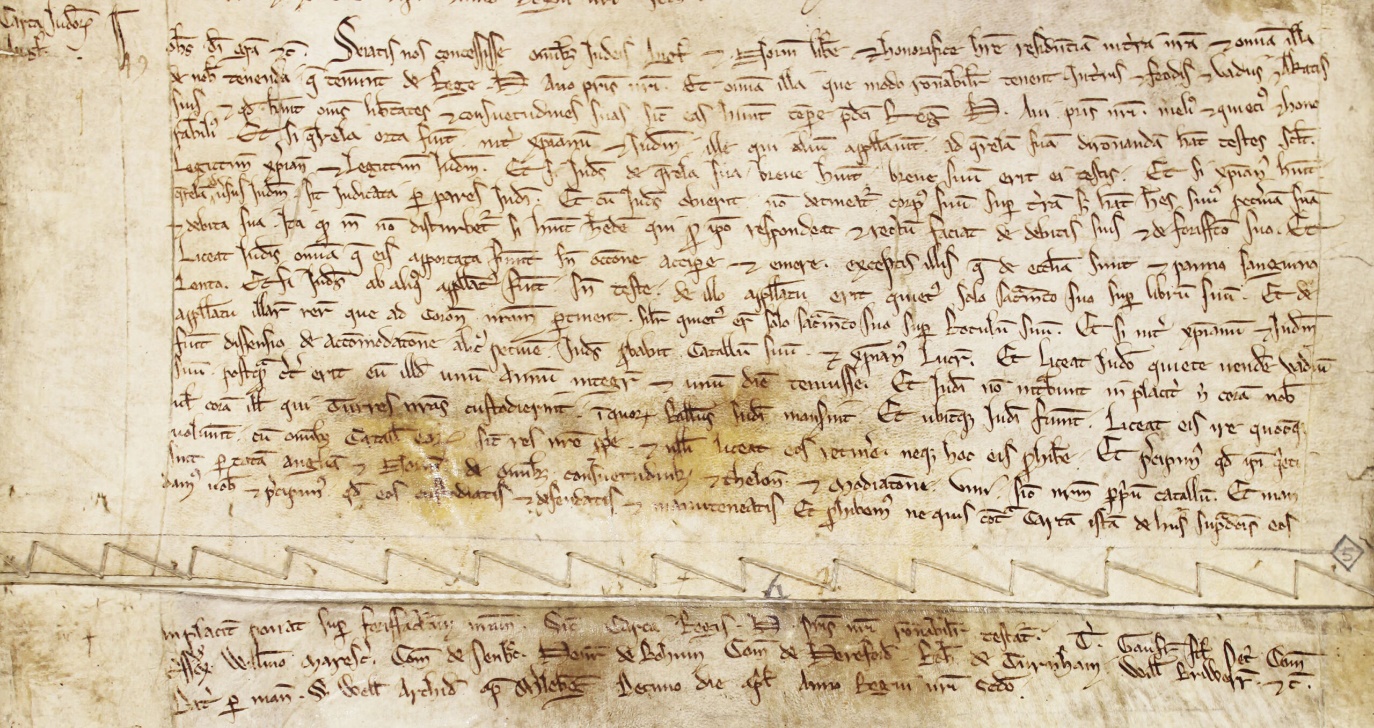 Carta Judeor
Angl
Johs di gra &c. Sciatis nos concessisse omnibz Judeis Angl & Norm libe & honorifice hre residentia in terra nra & omia illa
de nob tenenda q tenuerunt de Rege H Avo pris nri. Et omia illa que modo ronabilit tenent in terris & feodis & vadiis & Akatis
suis & qd hant oms libtates & consuetudines suas sic eas hunt tepe pdci Reg H. Avi pris nri meli & quieci & hono
rabili. Et si qrela orta fuit int xpianu & Judm ille qui aliu appllavit ad qrelā suā dironandā hat testes scil.
Legittim xpian & Legittim Judm. Et si Juds de qrela sua breve huit breve suu erit ei testis. Et si xpian huit
qrelā adversus Judm sit judicata per pares Judi. Et cu Juds obierit no detineat corp suu sup tra s hat hes suus pecunia sua
& debita sua. Ita qd in no disturbet si huit hede qui p ipo respondeat & rectu faciat de debitis suis & de foriffco suo. Et
Liceat Judis omia q eis apportata fuint sn occone accipe & emere exceptis illis q de ecclia sunt & panno sanguino
lento. Et si Juds ab aliq appllat fuit sn teste de illo appllatu erit quiet solo sacmento suo sup libru suu. Et de
appllatu illar rer que ad coron nram ptinent silr quiet erit solo sacmento suo sup Rotulu suu. Et si int xpianu & Judm
fuit dissensio de accomodatone alic pecunie Juds pbabit catallu suu & xpian lucr. Et liceat Judo quiete vende vadiu
suu postq ct erit eu illd unu annu integr & unu die tenuisse. Et Judi no intbunt in placit n cora nob
ul cora ill qui Turres nras custodierint in quor Ballivis Judi manserint. Et ubicuqz Judi fuint Liceat eis ire quocuqz
voluint cu omibz catall eor sic res nre ppe & nlli liceat eos retinere neqz hoc eis phibe. Et pcipim qd ipi quieti
sint p totā Angliā & Norm de omibz consuetudinibz & theloniis & modiatone vini sic nrm ppriu catallu. Et man
dam vob & pcipim qd eos custodiatis & defendatis & manuteneatis Et phibem ne quis cont Cartā istā de hiis supdcis eos
in placit ponat sup foriffacturā nram. Sic Carta Regis H pris nri ronabilit testat. T. Gaufr fil Petr Com
Essex Willmo Maresc Com de Penbroc Henr de Bohun Com de Hereford Rob de Turnham Will Briwerr &c.
Dat p man S Well Archid ap Merleberg Decimo die Apl Anno Regni nri scdo.